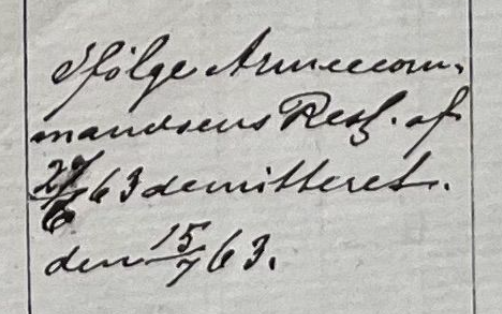 Ifølge Armeecom-
mandoens Resl. af
27/6 63 demitteret.
den 15/7 63.